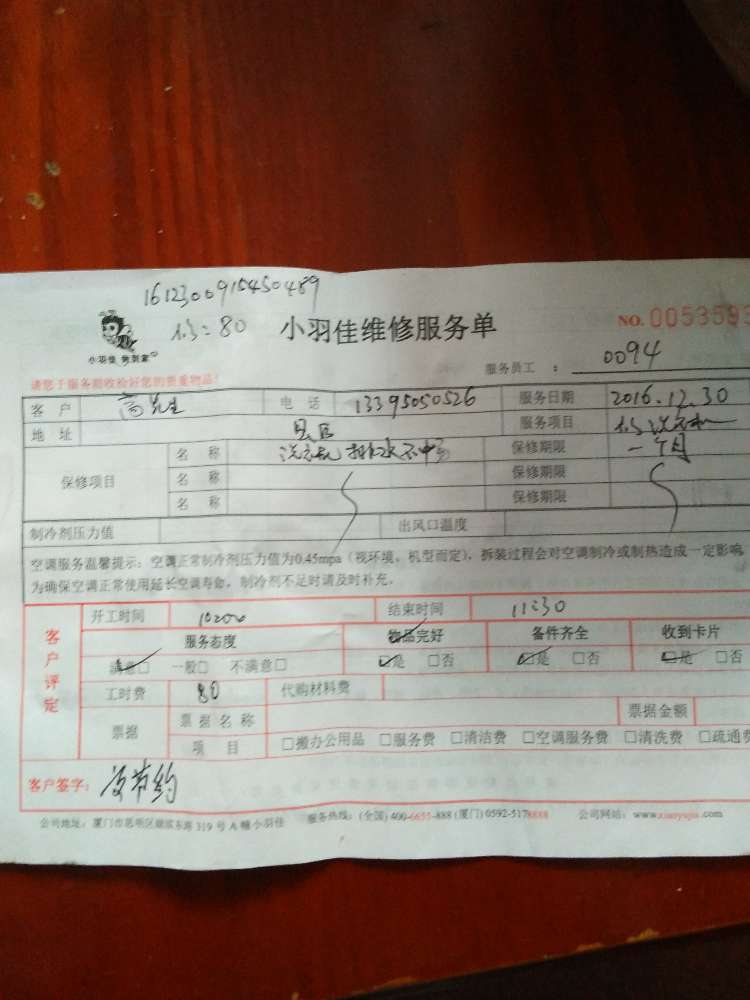 1612300915450489
小羽佳 到家 80 小羽佳维修服务单 NO. 005359
服务员工 : 0094
请您于服务前收捡好您的贵重物品!
客户 高先生 电话 13395050526 服务日期 2016.12.30
地址 服务项目 洗衣机
保修项目 名称 洗衣机 保修期限 一个月
名称 保修期限
名称 保修期限
制冷剂压力值 出风口温度
空调服务温馨提示: 空调正常制冷剂压力值为0.45mpa (视环境、机型而定), 拆装过程会对空调制冷或制热造成一定影响
为确保空调正常使用延长空调寿命, 制冷剂不足时请及时补充。
客户评定
开工时间 结束时间 11:30
服务态度 物品完好 备件齐全 收到卡片
满意□ 一般□ 不满意□ □是 □否 □是 □否 □是 □否
工时费 80 代购材料费
票据 票据名称 票据金额
项目 □搬办公用品 □服务费 □清洁费 □空调服务费 □清洗费 □疏通费
客户签字:
公司地址: 厦门市思明区湖滨东路 319 号 A 幢小羽佳 服务热线: (全国) 400-6655-888 (厦门) 0592-5178888 公司网站: www.xiaoyujia.com